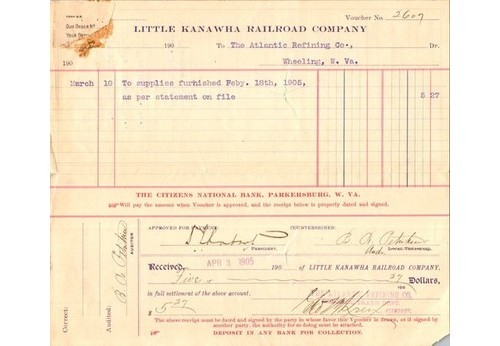 Our Order No
Voucher No. 2607
LITTLE KANAWHA RAILROAD COMPANY
190 To The Atlantic Refining Co., Dr.
190 Wheeling, W. Va.
March 18 To supplies furnished Feby. 18th, 1905,
as per statement on file 5 27
THE CITIZENS NATIONAL BANK, PARKERSBURG, W. VA.
Will pay the amount when Voucher is approved, and the receipt below is properly dated and signed.
APPROVED FOR PAYMENT: COUNTERSIGNED:
PRESIDENT. LOCAL TREASURER.
APR 3 1905
Received, 190 of LITTLE KANAWHA RAILROAD COMPANY,
Five 27 Dollars,
in full settlement of the above account.
$ 5 27
The above receipt must be dated and signed by the party in whose favor this Voucher is drawn, or, if signed by
another party, the authority for so doing must be attached.
DEPOSIT IN ANY BANK FOR COLLECTION.
Correct:
Audited:
AUDITOR